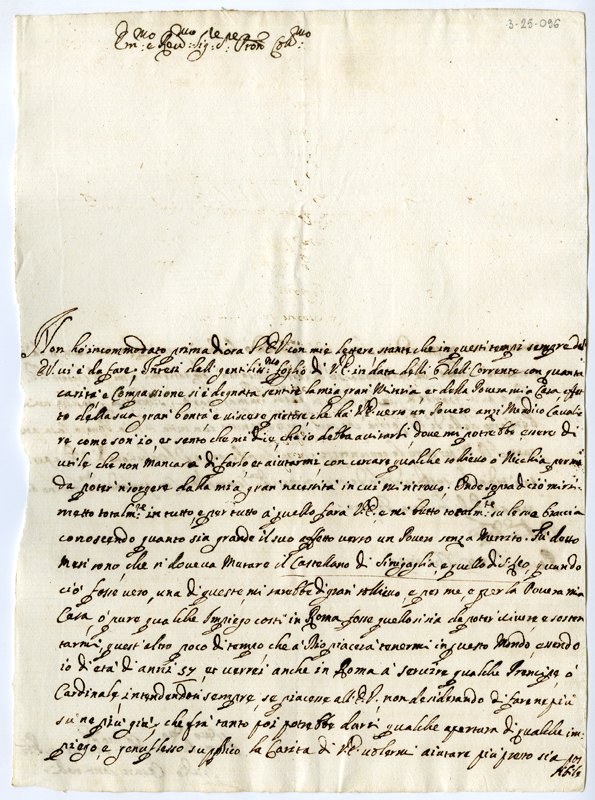 3-25-096
Em.mo e Rev.mo Sig.re e P.ron Col.mo
Non ho incommodato prima di ora V.E. con mie lettere stante che in questi tempi sempre del
vi è da fare. Intesi dall gentiliss.mo foglio di V.E. in data delli 6 dell Corrente con quanta
carità e Compassione si è degnata sentire la mia gran Miseria et della Povera mia Casa effet
to della sua gran bontà e viscere pietose che ha V.E. verso un Povero anzi Mendico Cavalie
re come son io, et sento che mi dice, che io debba avisarli dove mi potrebbe essere di
utile che non mancarà di farlo, et aiutarmi con cercare qualche sollievo ò Nicchia per me
da poter risorgere dalla mia gran necessita in cui mi ritrovo. Onde sopra di ciò mi ri
metto totalm.te in tutto, e per tutto à quello farà V.E. e mi butto totalm.te su le sue braccia
conoscendo quanto sia grande il suo affetto verso un Povero senza Merito. Fù detto
Mesi sono che si doveva Mutare il Castellano di Sinigaglia, e quello di S. Leo, quando
ciò fosse vero, una di queste mi sarebbe di gran sollievo, e per me e per la Povera mia
Casa ò pure qualche Impiego costì in Roma fosse quello si sia da poter vivere e sosten
tarmi quest'altro poco di tempo che à Dio piacerà tenermi in questo Mondo essendo
io di età di anni 57, et verrei anche in Roma à servire qualche Prencipe ò
Cardinale, intendendosi sempre, se piacesse all' E.V. non desiderando di fare ne più
sù ne più giù, che fra tanto poi potrebbe darsi qualche apertura di qualche im:
piego, e genuflesso supplico la Carità di V.E. volermi aiutare più presto sia pos
sibile